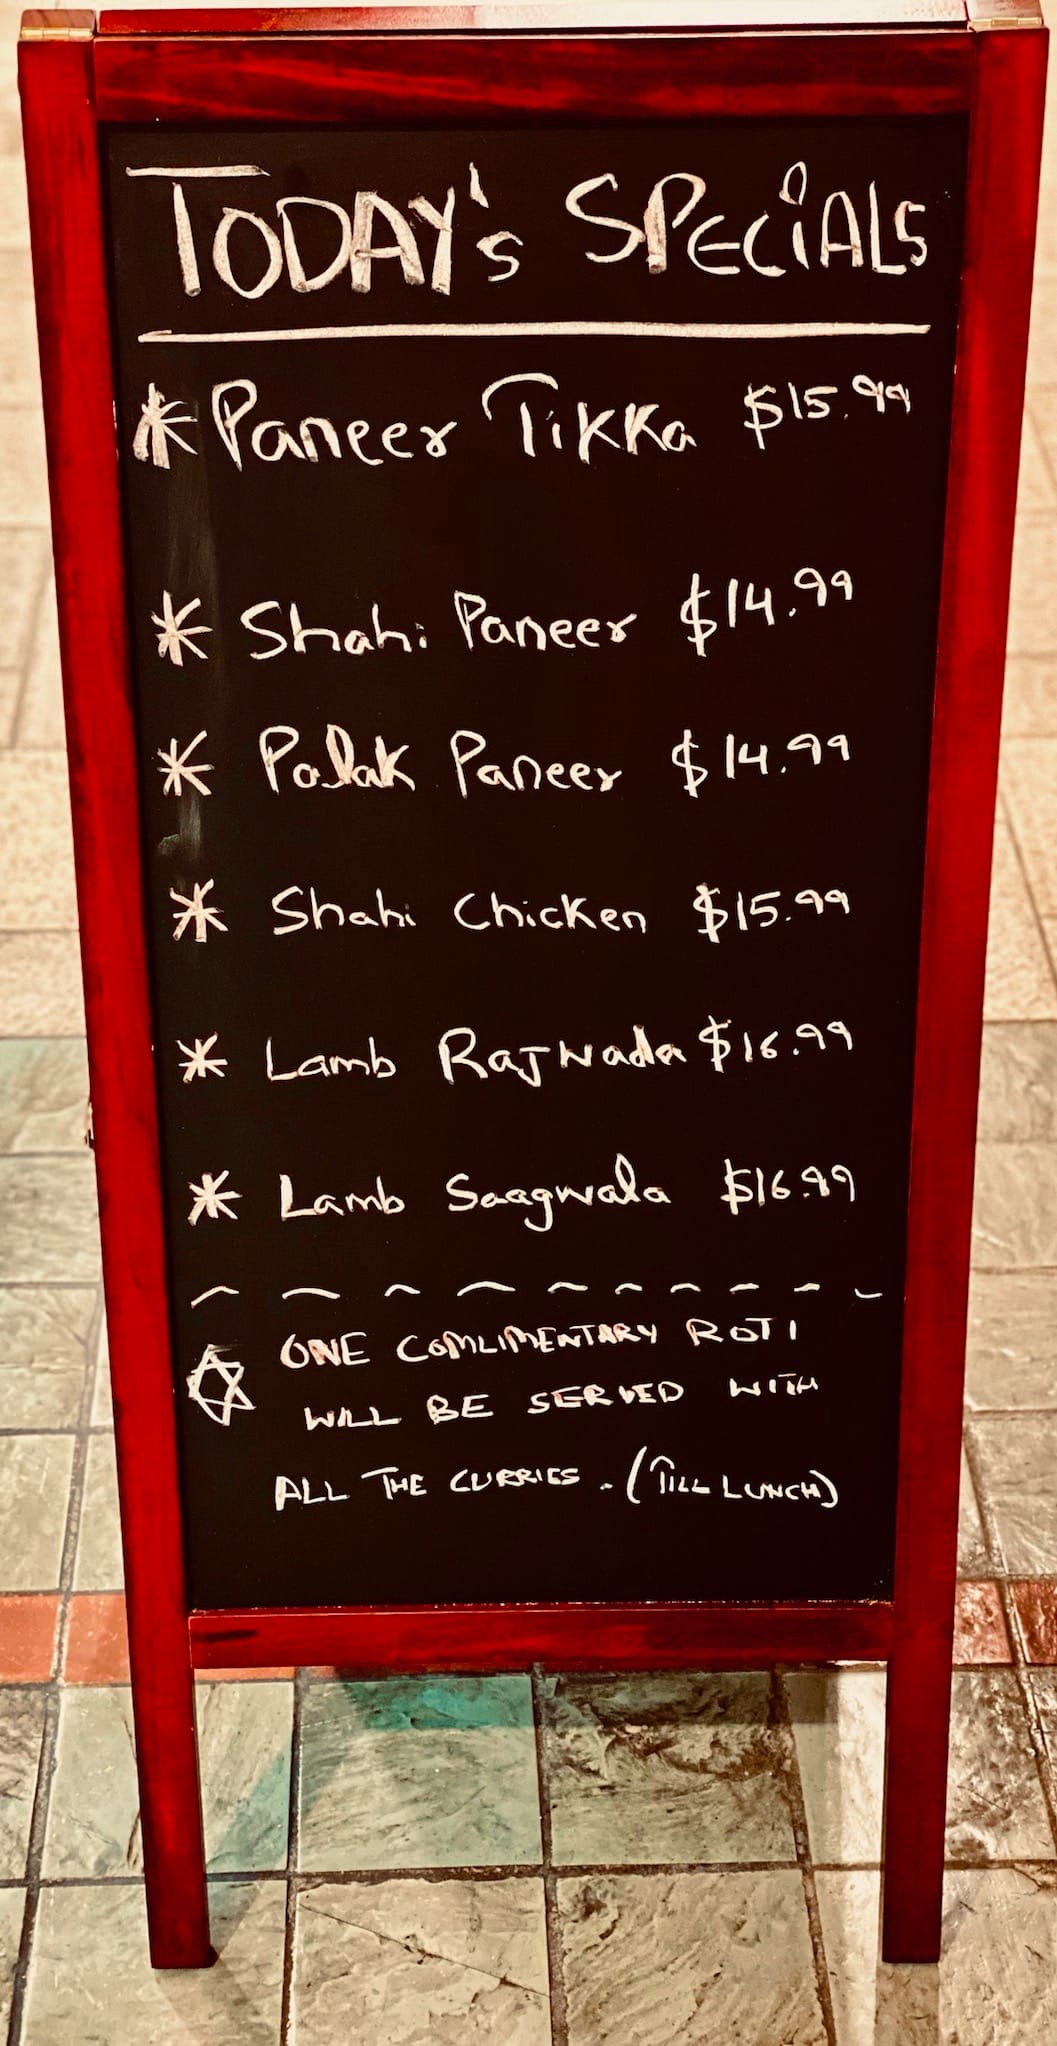 TODAY's SPECiALS
* Paneer Tikka $15.99
* Shahi Paneer $14.99
* Palak Paneer $14.99
* Shahi Chicken $15.99
* Lamb Rajwada $16.99
* Lamb Saagwala $16.99
ONE COMLIMENTARY ROTI
WILL BE SERVED WITH
ALL THE CURRIES. (TILL LUNCH)